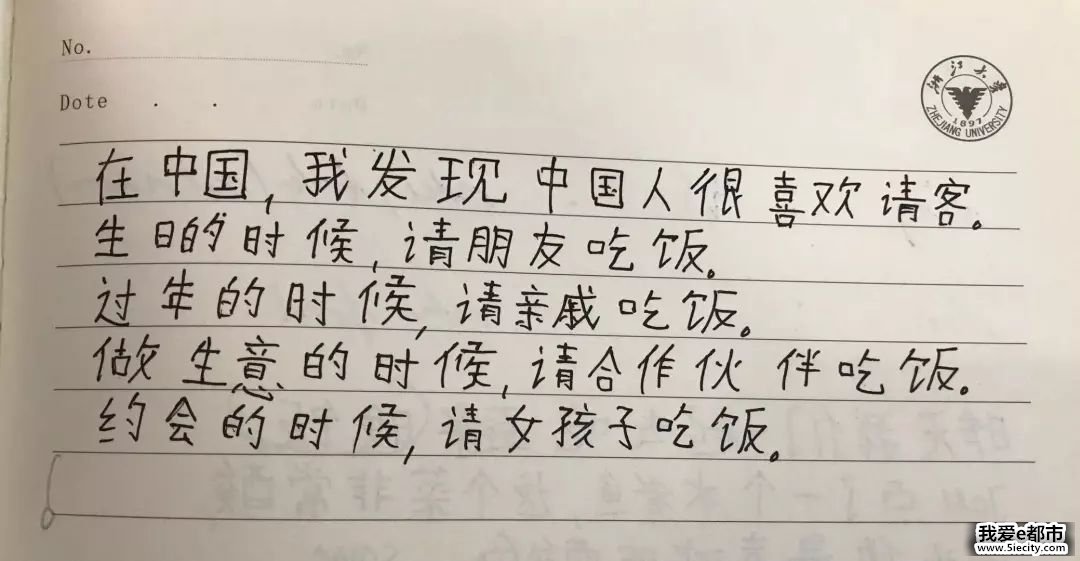 No.
Dote . .
浙江大学
ZHEJIANG UNIVERSITY
1897
在中国,我发现中国人很喜欢请客。
生日的时候,请朋友吃饭。
过年的时候,请亲戚吃饭。
做生意的时候,请合作伙伴吃饭。
约会的时候,请女孩子吃饭。
我爱e都市
www.5iecity.com